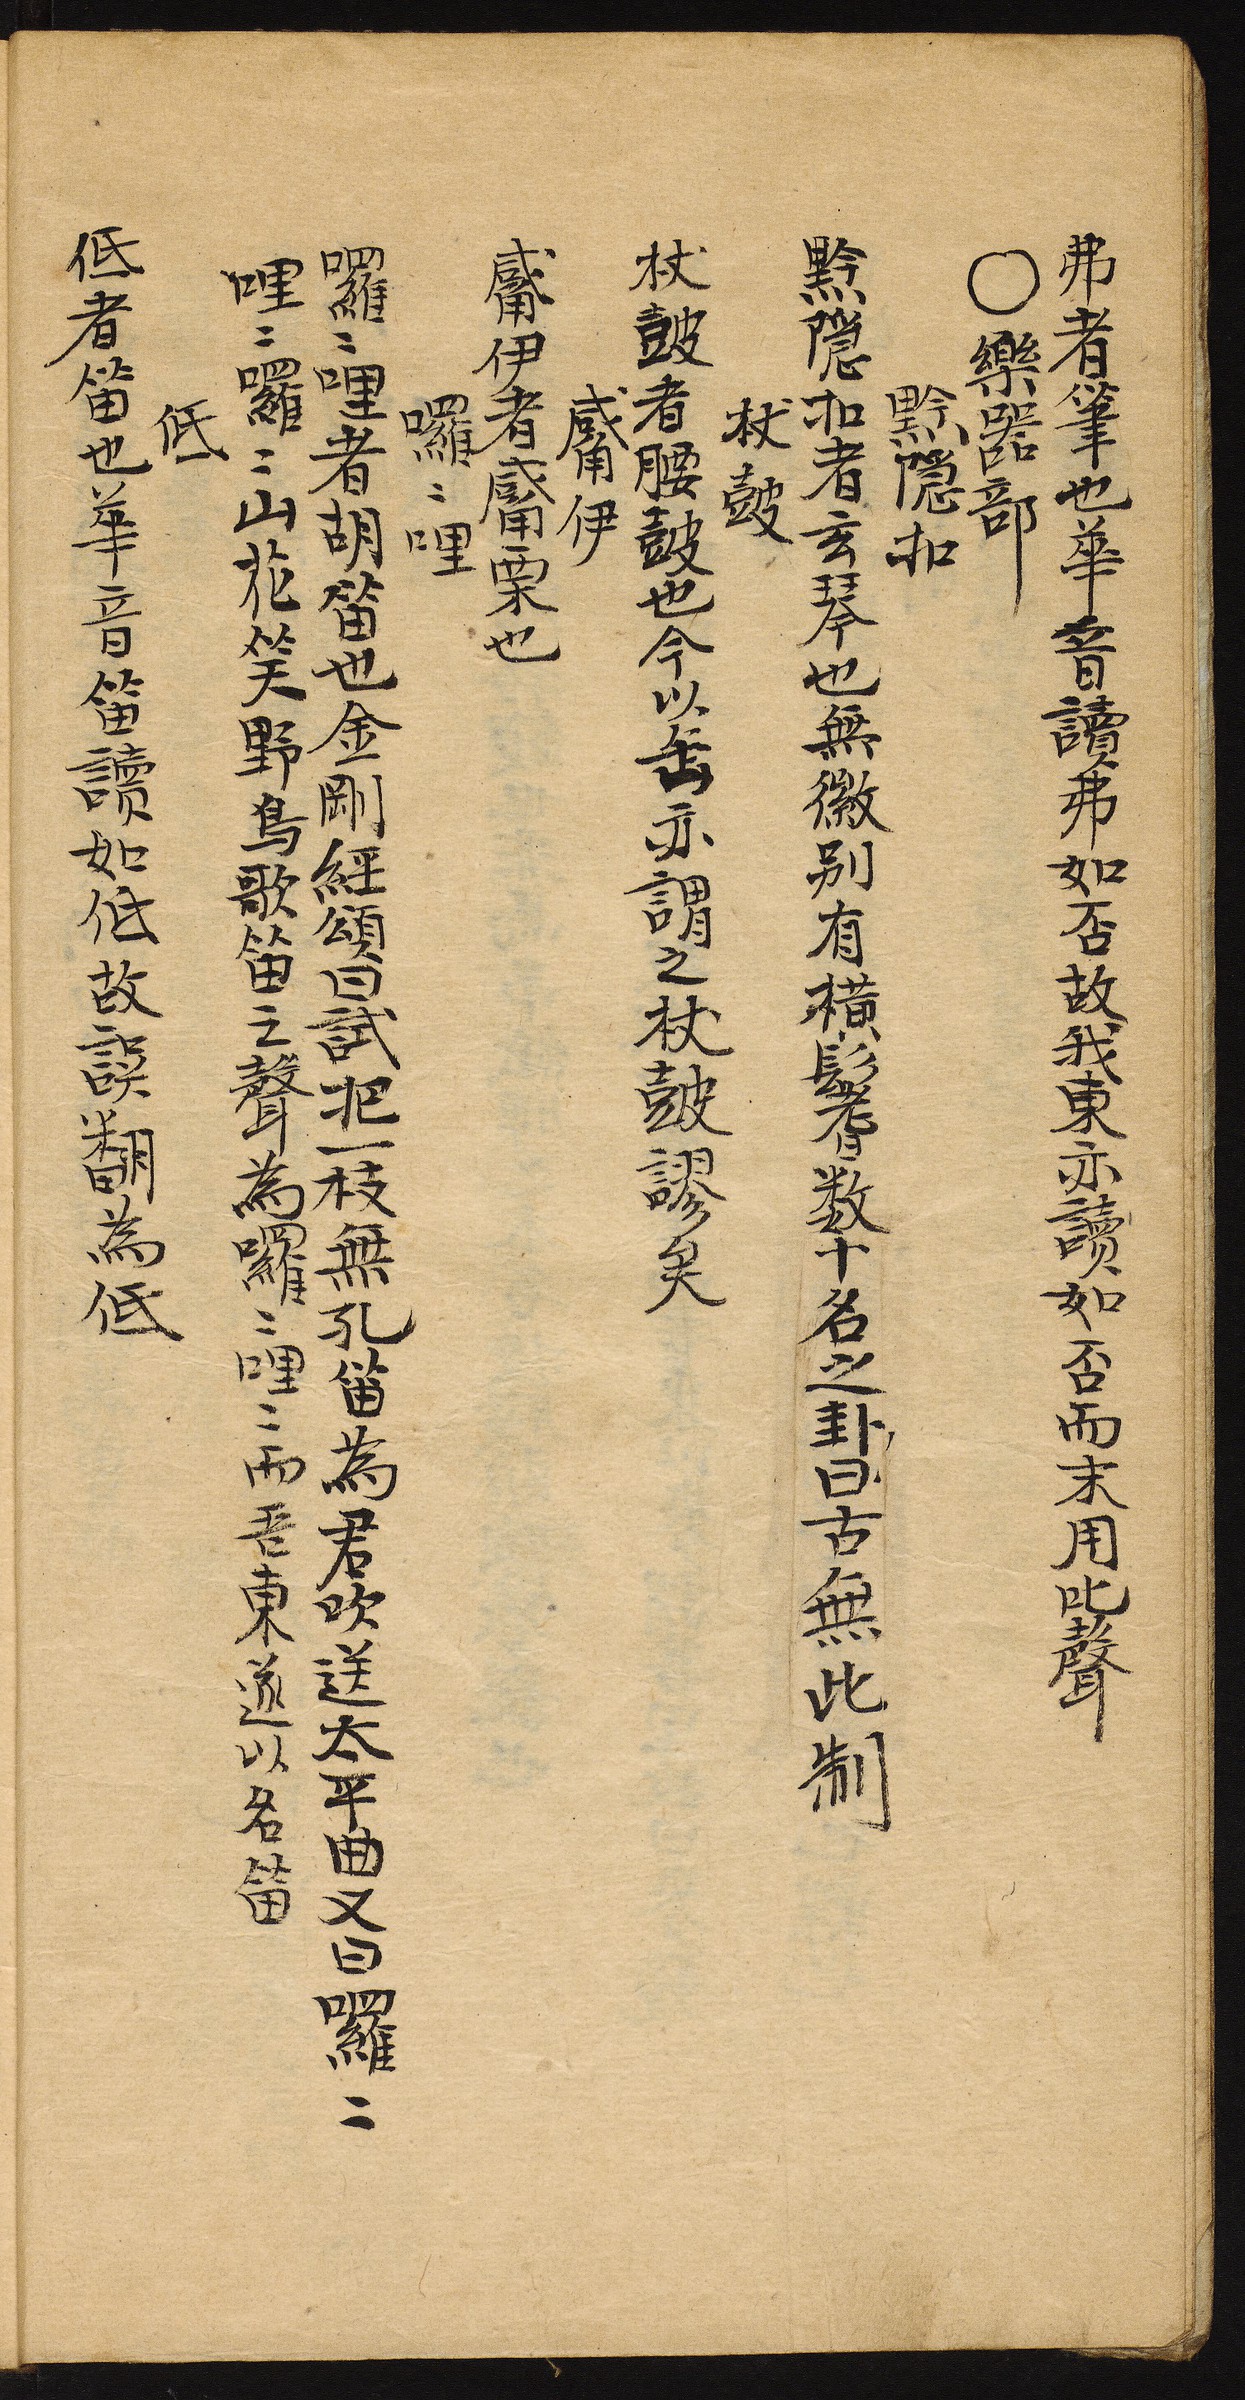 弗者筆也華音讀弗如否故我東亦讀如否而末用叱聲
〇樂器部
黔隱扣
黔隱扣者玄琴也無徽别有橫髻數十名之卦曰古無此制
杖鼓
杖鼓者腰鼓也今以缶亦謂之杖鼓謬矣
觱伊
觱伊者觱栗也
囉〻哩
囉〻哩者胡笛也金剛經頌曰試把一枝無孔笛為君吹送太平曲又曰囉〻
哩〻囉〻山花笑野鳥歌笛之聲為囉〻哩〻而吾東遂以名笛
低
低者笛也華音笛讀如低故誤翻為低